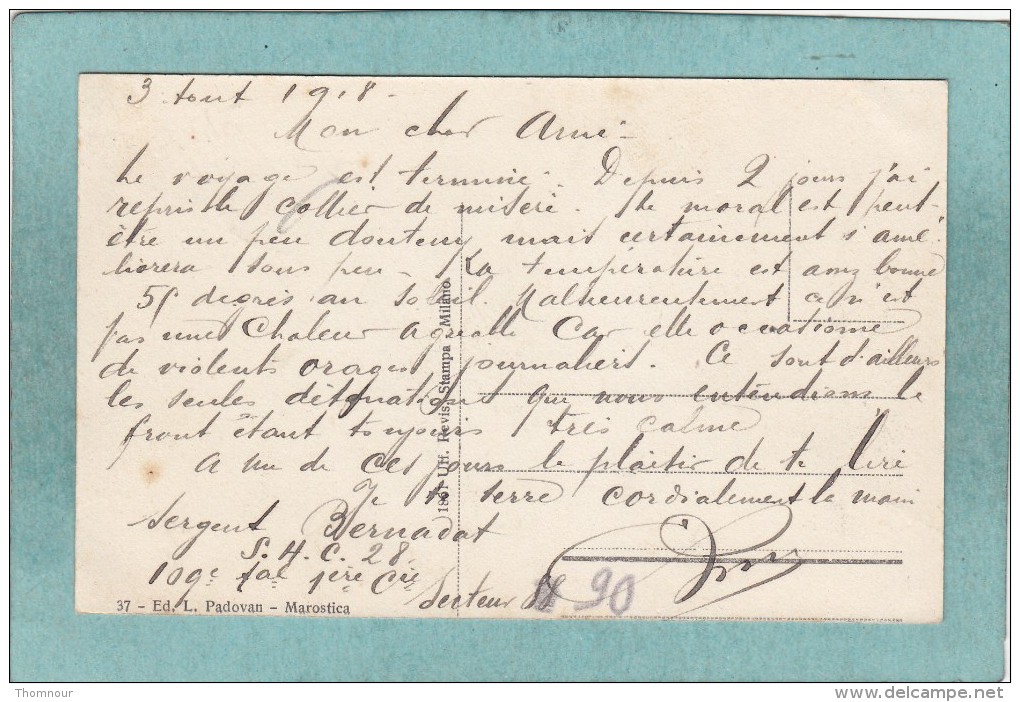 3 tout 1918 -
Mon cher Aimé -
Le voyage est terminé. Depuis 2 jours j'ai
repris le collier de misere. Le moral est peut-
être un peu douteux mais certainement s'ame-
liorera sous peu - La température est assez bonne
degrés au soleil. Malheureusement ce n'est
pas une chaleur agréable car elle occasionne
de violents orages journaliers. Ce sont d'ailleurs
les seules détonations que nous entendions le
front étant toujours très calme
A un de ces jours le plaisir de te lire
Je te serre cordialement la main
Sergent Bernadat
S. H. C. 28
109e 1ère Cie Secteur
90
37 - Ed. L. Padovan - Marostica
1801 Uff. Revis. Stampa - Milano.
Thomnour
www.delcampe.net